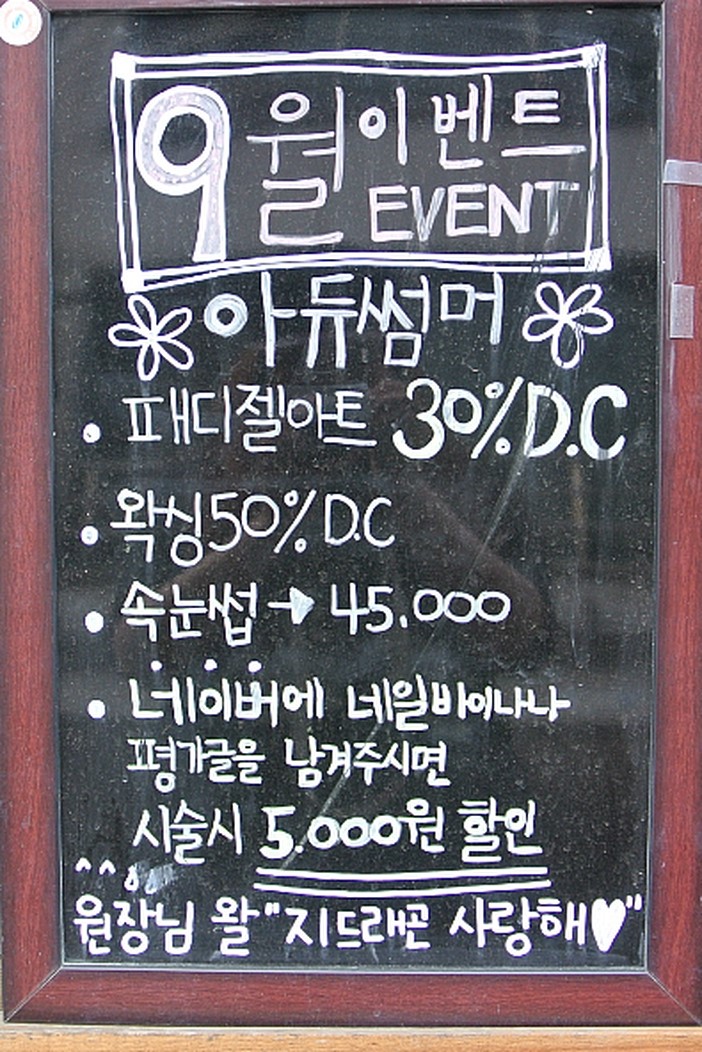 9월이벤트
EVENT
아듀썸머
• 패디젤아트 30% D.C
• 왁싱 50% D.C
• 속눈썹 → 45.000
• 네이버에 네일바이나나
평가글을 남겨주시면
시술시 5.000원 할인
^^
원장님 왈 "지드래곤 사랑해♥"